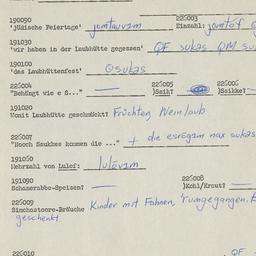 190090 226003
'jüdische Feiertage' jomtauvim Einzahl: jomtof
191030
'wir haben in der Laubhütte gegessen' QF sukas QM su
190100
'das Laubhüttenfest' sukas
226004 226005 226006
"Behüngt wie e S..." )Seik? )Seikke?
191020
Womit Laubhütte geschmückt? Früchten, Weinlaub
226007
"Hooch Saukkes kommen die ..." + die esrōgim nax sukas
191050
Mehrzahl von Lulef: lulōvim
191090 226008
Schazernbbe-Speisen? )Kohl/Kraut?
226009
Simchestoore-Bräuche Kinder mit Fahnen, 'rumgegangen.
geschenkt.
226010 QF